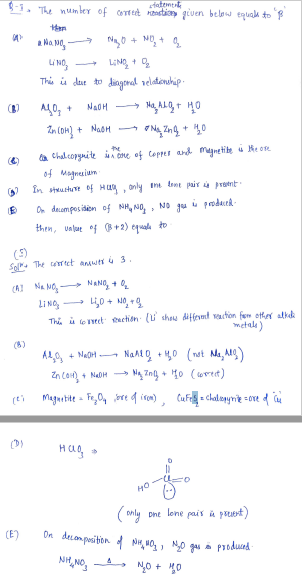 Q-3, The number of correct statements given below equals to 'β'
(A) NaNO3 → Na2O + NO2 + O2
LiNO3 → LiNO2 + O2
This is due to diagonal relationship.
(B) Al2O3 + NaOH → Na2AlO2 + H2O
Zn(OH)2 + NaOH → Na2ZnO2 + H2O
(C) Chalcopyrite is the ore of Copper and Magnetite is the ore
of Magnesium.
(D) In structure of HClO3, only one lone pair is present.
(E) On decomposition of NH4NO3, NO gas is produced.
then, value of (β+2) equals to
(5)
Solⁿ, The correct answer is 3.
(A) NaNO3 → NaNO2 + O2
LiNO3 → Li2O + NO2 + O2
This is correct reaction. (Li show different reaction from other alkali
metals)
(B)
Al2O3 + NaOH → NaAlO2 + H2O (not Na2AlO2)
Zn(OH)2 + NaOH → Na2ZnO2 + H2O (correct)
(C) Magnetite = Fe3O4 (ore of iron), CuFeS2 = Chalcopyrite = ore of Cu
(D)
HClO3 ⇒
O
HO Cl O
(only one lone pair is present)
(E) On decomposition of NH4NO3, N2O gas is produced.
NH4NO3 →Δ N2O + H2O